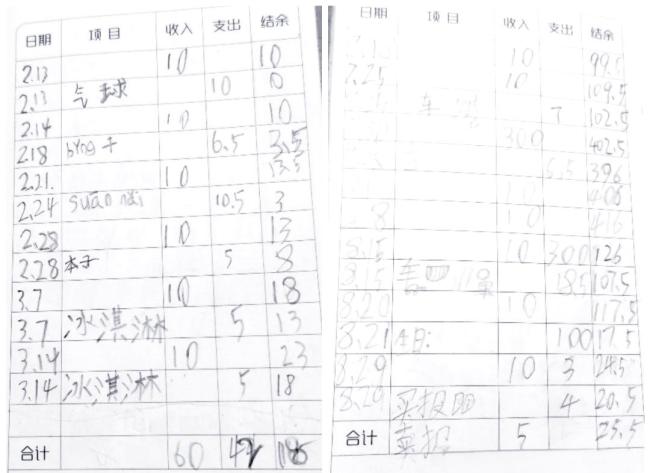 日期 项目 收入 支出 结余
2.13 10 10
2.13 气球 10 0
2.14 10 10
2.18 bǐng干 6.5 3.5
2.21. 10 13.5
2.24 suān nǎi 10.5 3
2.28 10 13
2.28 本子 5 8
3.7 10 18
3.7 冰淇淋 5 13
3.14 10 23
3.14 冰淇淋 5 18
合计 60
日期 项目 收入 支出 结余
10 99.5
7.25 10 109.5
车 7 102.5
300 402.5
6.5 396
406
8 10 416
8.15 10 300 126
8.15 18.5 107.5
8.20 10 117.5
8.21 100 17.5
8.29 10 3 24.5
8.29 买报 4 20.5
合计 卖报 5 25.5